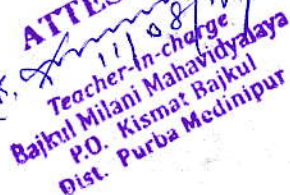 ATTES
11/08/
Teacher-in-charge
Bajkul Milani Mahavidyalaya
P.O. Kismat Bajkul
Dist. Purba Medinipur